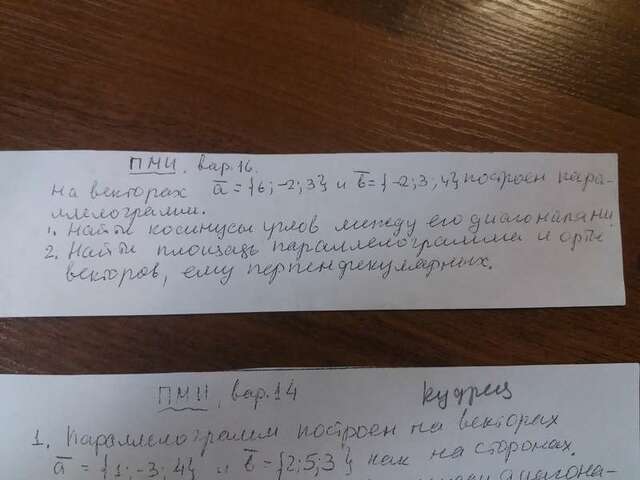 ПМИ, вар. 16.
на векторах a̅ = {6; -2; 3} и b̅ = {-2; 3; 4} построен пара-
ллелограмм.
1. Найти косинусы углов между его диагоналями.
2. Найти площадь параллелограмма и орты
векторов, ему перпендикулярных.
ПМИ, вар. 14 Кудрец
1. Параллелограмм построен на векторах
a̅ = {1; -3; 4} и b̅ = {2; 5; 3} как на сторонах.
диагона-